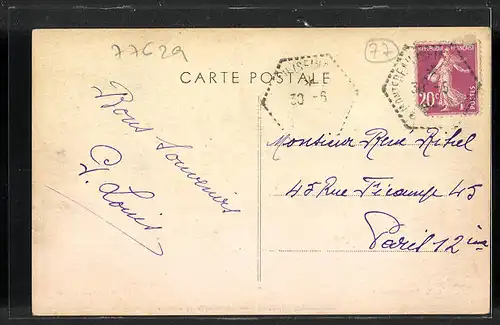 77C29
77
CARTE POSTALE
30 -6
REPUBLIQUE FRANÇAISE
20c
POSTES
Bons Souvenirs
G. Louis
Monsieur Rene
45 Rue Fécamp 45
Paris 12